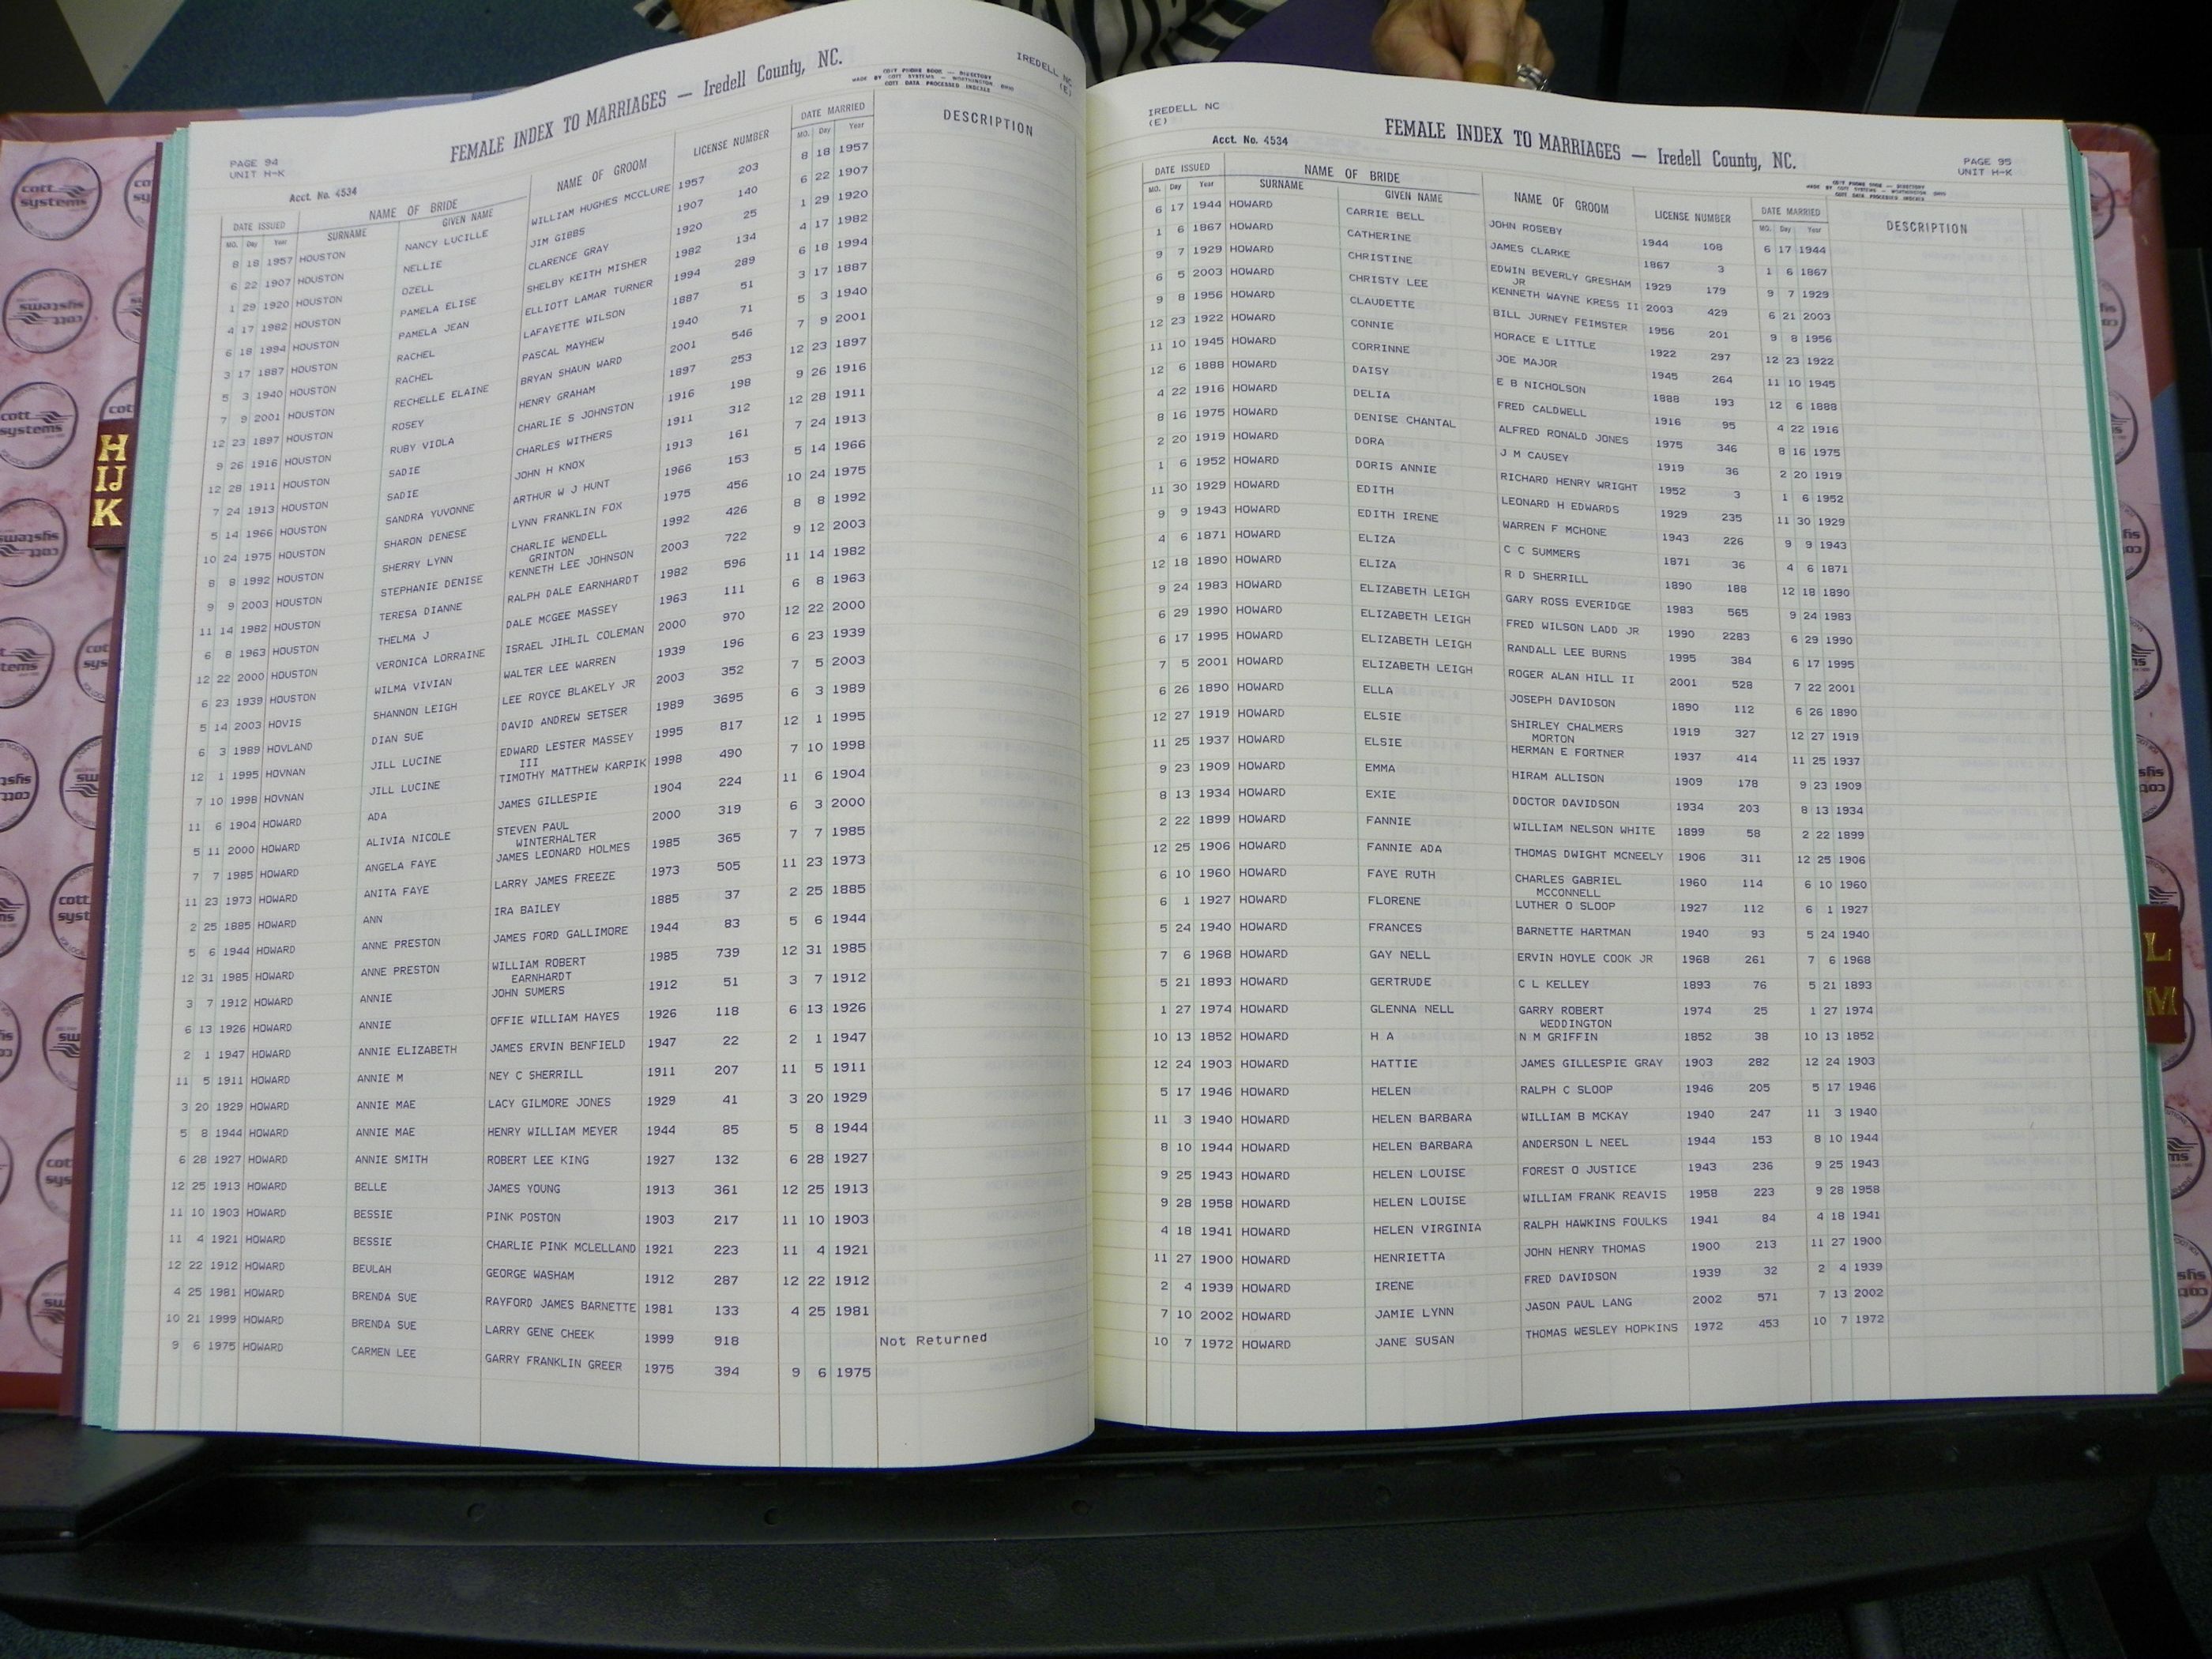 IREDELL NC
(E)
FEMALE INDEX TO MARRIAGES — Iredell County, NC.
COTT PHONE BOOK — DIRECTORY
MADE BY COTT SYSTEMS — WORTHINGTON OHIO
COTT DATA PROCESSED INDEXES
PAGE 94
UNIT H-K
Acct. No. 4534
DATE ISSUED NAME OF BRIDE NAME OF GROOM LICENSE NUMBER DATE MARRIED DESCRIPTION
MO. Day Year SURNAME GIVEN NAME MO. Day Year
8 18 1957 HOUSTON NANCY LUCILLE WILLIAM HUGHES MCCLURE 1957 203 8 18 1957
6 22 1907 HOUSTON NELLIE JIM GIBBS 1907 140 6 22 1907
1 29 1920 HOUSTON OZELL CLARENCE GRAY 1920 25 1 29 1920
4 17 1982 HOUSTON PAMELA ELISE SHELBY KEITH MISHER 1982 134 4 17 1982
6 18 1994 HOUSTON PAMELA JEAN ELLIOTT LAMAR TURNER 1994 289 6 18 1994
3 17 1887 HOUSTON RACHEL LAFAYETTE WILSON 1887 51 3 17 1887
5 3 1940 HOUSTON RACHEL PASCAL MAYHEW 1940 71 5 3 1940
7 9 2001 HOUSTON RECHELLE ELAINE BRYAN SHAUN WARD 2001 546 7 9 2001
12 23 1897 HOUSTON ROSEY HENRY GRAHAM 1897 253 12 23 1897
9 26 1916 HOUSTON RUBY VIOLA CHARLIE S JOHNSTON 1916 198 9 26 1916
12 28 1911 HOUSTON SADIE CHARLES WITHERS 1911 312 12 28 1911
7 24 1913 HOUSTON SADIE JOHN H KNOX 1913 161 7 24 1913
5 14 1966 HOUSTON SANDRA YUVONNE ARTHUR W J HUNT 1966 153 5 14 1966
10 24 1975 HOUSTON SHARON DENESE LYNN FRANKLIN FOX 1975 456 10 24 1975
8 8 1992 HOUSTON SHERRY LYNN CHARLIE WENDELL 1992 426 8 8 1992
GRINTON
9 9 2003 HOUSTON STEPHANIE DENISE KENNETH LEE JOHNSON 2003 722 9 12 2003
11 14 1982 HOUSTON TERESA DIANNE RALPH DALE EARNHARDT 1982 596 11 14 1982
6 8 1963 HOUSTON THELMA J DALE MCGEE MASSEY 1963 111 6 8 1963
12 22 2000 HOUSTON VERONICA LORRAINE ISRAEL JIHLIL COLEMAN 2000 970 12 22 2000
6 23 1939 HOUSTON WILMA VIVIAN WALTER LEE WARREN 1939 196 6 23 1939
5 14 2003 HOVIS SHANNON LEIGH LEE ROYCE BLAKELY JR 2003 352 7 5 2003
6 3 1989 HOVLAND DIAN SUE DAVID ANDREW SETSER 1989 3695 6 3 1989
12 1 1995 HOVNAN JILL LUCINE EDWARD LESTER MASSEY 1995 817 12 1 1995
III
7 10 1998 HOVNAN JILL LUCINE TIMOTHY MATTHEW KARPIK 1998 490 7 10 1998
11 6 1904 HOWARD ADA JAMES GILLESPIE 1904 224 11 6 1904
5 11 2000 HOWARD ALIVIA NICOLE STEVEN PAUL 2000 319 6 3 2000
WINTERHALTER
7 7 1985 HOWARD ANGELA FAYE JAMES LEONARD HOLMES 1985 365 7 7 1985
11 23 1973 HOWARD ANITA FAYE LARRY JAMES FREEZE 1973 505 11 23 1973
2 25 1885 HOWARD ANN IRA BAILEY 1885 37 2 25 1885
5 6 1944 HOWARD ANNE PRESTON JAMES FORD GALLIMORE 1944 83 5 6 1944
12 31 1985 HOWARD ANNE PRESTON WILLIAM ROBERT 1985 739 12 31 1985
EARNHARDT
3 7 1912 HOWARD ANNIE JOHN SUMERS 1912 51 3 7 1912
6 13 1926 HOWARD ANNIE OFFIE WILLIAM HAYES 1926 118 6 13 1926
2 1 1947 HOWARD ANNIE ELIZABETH JAMES ERVIN BENFIELD 1947 22 2 1 1947
11 5 1911 HOWARD ANNIE M NEY C SHERRILL 1911 207 11 5 1911
3 20 1929 HOWARD ANNIE MAE LACY GILMORE JONES 1929 41 3 20 1929
5 8 1944 HOWARD ANNIE MAE HENRY WILLIAM MEYER 1944 85 5 8 1944
6 28 1927 HOWARD ANNIE SMITH ROBERT LEE KING 1927 132 6 28 1927
12 25 1913 HOWARD BELLE JAMES YOUNG 1913 361 12 25 1913
11 10 1903 HOWARD BESSIE PINK POSTON 1903 217 11 10 1903
11 4 1921 HOWARD BESSIE CHARLIE PINK MCLELLAND 1921 223 11 4 1921
12 22 1912 HOWARD BEULAH GEORGE WASHAM 1912 287 12 22 1912
4 25 1981 HOWARD BRENDA SUE RAYFORD JAMES BARNETTE 1981 133 4 25 1981
10 21 1999 HOWARD BRENDA SUE LARRY GENE CHEEK 1999 918 Not Returned
9 6 1975 HOWARD CARMEN LEE GARRY FRANKLIN GREER 1975 394 9 6 1975
IREDELL NC
(E)
Acct. No. 4534
FEMALE INDEX TO MARRIAGES — Iredell County, NC.
PAGE 95
UNIT H-K
COTT PHONE BOOK — DIRECTORY
MADE BY COTT SYSTEMS — WORTHINGTON OHIO
COTT DATA PROCESSED INDEXES
DATE ISSUED NAME OF BRIDE NAME OF GROOM LICENSE NUMBER DATE MARRIED DESCRIPTION
MO. Day Year SURNAME GIVEN NAME MO. Day Year
6 17 1944 HOWARD CARRIE BELL JOHN ROSEBY 1944 108 6 17 1944
1 6 1867 HOWARD CATHERINE JAMES CLARKE 1867 3 1 6 1867
9 7 1929 HOWARD CHRISTINE EDWIN BEVERLY GRESHAM 1929 179 9 7 1929
JR
6 5 2003 HOWARD CHRISTY LEE KENNETH WAYNE KRESS II 2003 429 6 21 2003
9 8 1956 HOWARD CLAUDETTE BILL JURNEY FEIMSTER 1956 201 9 8 1956
12 23 1922 HOWARD CONNIE HORACE E LITTLE 1922 297 12 23 1922
11 10 1945 HOWARD CORRINNE JOE MAJOR 1945 264 11 10 1945
12 6 1888 HOWARD DAISY E B NICHOLSON 1888 193 12 6 1888
4 22 1916 HOWARD DELIA FRED CALDWELL 1916 95 4 22 1916
8 16 1975 HOWARD DENISE CHANTAL ALFRED RONALD JONES 1975 346 8 16 1975
2 20 1919 HOWARD DORA J M CAUSEY 1919 36 2 20 1919
1 6 1952 HOWARD DORIS ANNIE RICHARD HENRY WRIGHT 1952 3 1 6 1952
11 30 1929 HOWARD EDITH LEONARD H EDWARDS 1929 235 11 30 1929
9 9 1943 HOWARD EDITH IRENE WARREN F MCHONE 1943 226 9 9 1943
4 6 1871 HOWARD ELIZA C C SUMMERS 1871 36 4 6 1871
12 18 1890 HOWARD ELIZA R D SHERRILL 1890 188 12 18 1890
9 24 1983 HOWARD ELIZABETH LEIGH GARY ROSS EVERIDGE 1983 565 9 24 1983
6 29 1990 HOWARD ELIZABETH LEIGH FRED WILSON LADD JR 1990 2283 6 29 1990
6 17 1995 HOWARD ELIZABETH LEIGH RANDALL LEE BURNS 1995 384 6 17 1995
7 5 2001 HOWARD ELIZABETH LEIGH ROGER ALAN HILL II 2001 528 7 22 2001
6 26 1890 HOWARD ELLA JOSEPH DAVIDSON 1890 112 6 26 1890
12 27 1919 HOWARD ELSIE SHIRLEY CHALMERS 1919 327 12 27 1919
MORTON
11 25 1937 HOWARD ELSIE HERMAN E FORTNER 1937 414 11 25 1937
9 23 1909 HOWARD EMMA HIRAM ALLISON 1909 178 9 23 1909
8 13 1934 HOWARD EXIE DOCTOR DAVIDSON 1934 203 8 13 1934
2 22 1899 HOWARD FANNIE WILLIAM NELSON WHITE 1899 58 2 22 1899
12 25 1906 HOWARD FANNIE ADA THOMAS DWIGHT MCNEELY 1906 311 12 25 1906
6 10 1960 HOWARD FAYE RUTH CHARLES GABRIEL 1960 114 6 10 1960
MCCONNELL
6 1 1927 HOWARD FLORENE LUTHER O SLOOP 1927 112 6 1 1927
5 24 1940 HOWARD FRANCES BARNETTE HARTMAN 1940 93 5 24 1940
7 6 1968 HOWARD GAY NELL ERVIN HOYLE COOK JR 1968 261 7 6 1968
5 21 1893 HOWARD GERTRUDE C L KELLEY 1893 76 5 21 1893
1 27 1974 HOWARD GLENNA NELL GARRY ROBERT 1974 25 1 27 1974
WEDDINGTON
10 13 1852 HOWARD H A N M GRIFFIN 1852 38 10 13 1852
12 24 1903 HOWARD HATTIE JAMES GILLESPIE GRAY 1903 282 12 24 1903
5 17 1946 HOWARD HELEN RALPH C SLOOP 1946 205 5 17 1946
11 3 1940 HOWARD HELEN BARBARA WILLIAM B MCKAY 1940 247 11 3 1940
8 10 1944 HOWARD HELEN BARBARA ANDERSON L NEEL 1944 153 8 10 1944
9 25 1943 HOWARD HELEN LOUISE FOREST O JUSTICE 1943 236 9 25 1943
9 28 1958 HOWARD HELEN LOUISE WILLIAM FRANK REAVIS 1958 223 9 28 1958
4 18 1941 HOWARD HELEN VIRGINIA RALPH HAWKINS FOULKS 1941 84 4 18 1941
11 27 1900 HOWARD HENRIETTA JOHN HENRY THOMAS 1900 213 11 27 1900
2 4 1939 HOWARD IRENE FRED DAVIDSON 1939 32 2 4 1939
7 10 2002 HOWARD JAMIE LYNN JASON PAUL LANG 2002 571 7 13 2002
10 7 1972 HOWARD JANE SUSAN THOMAS WESLEY HOPKINS 1972 453 10 7 1972
H
IJ
K
L
M
cott
systems